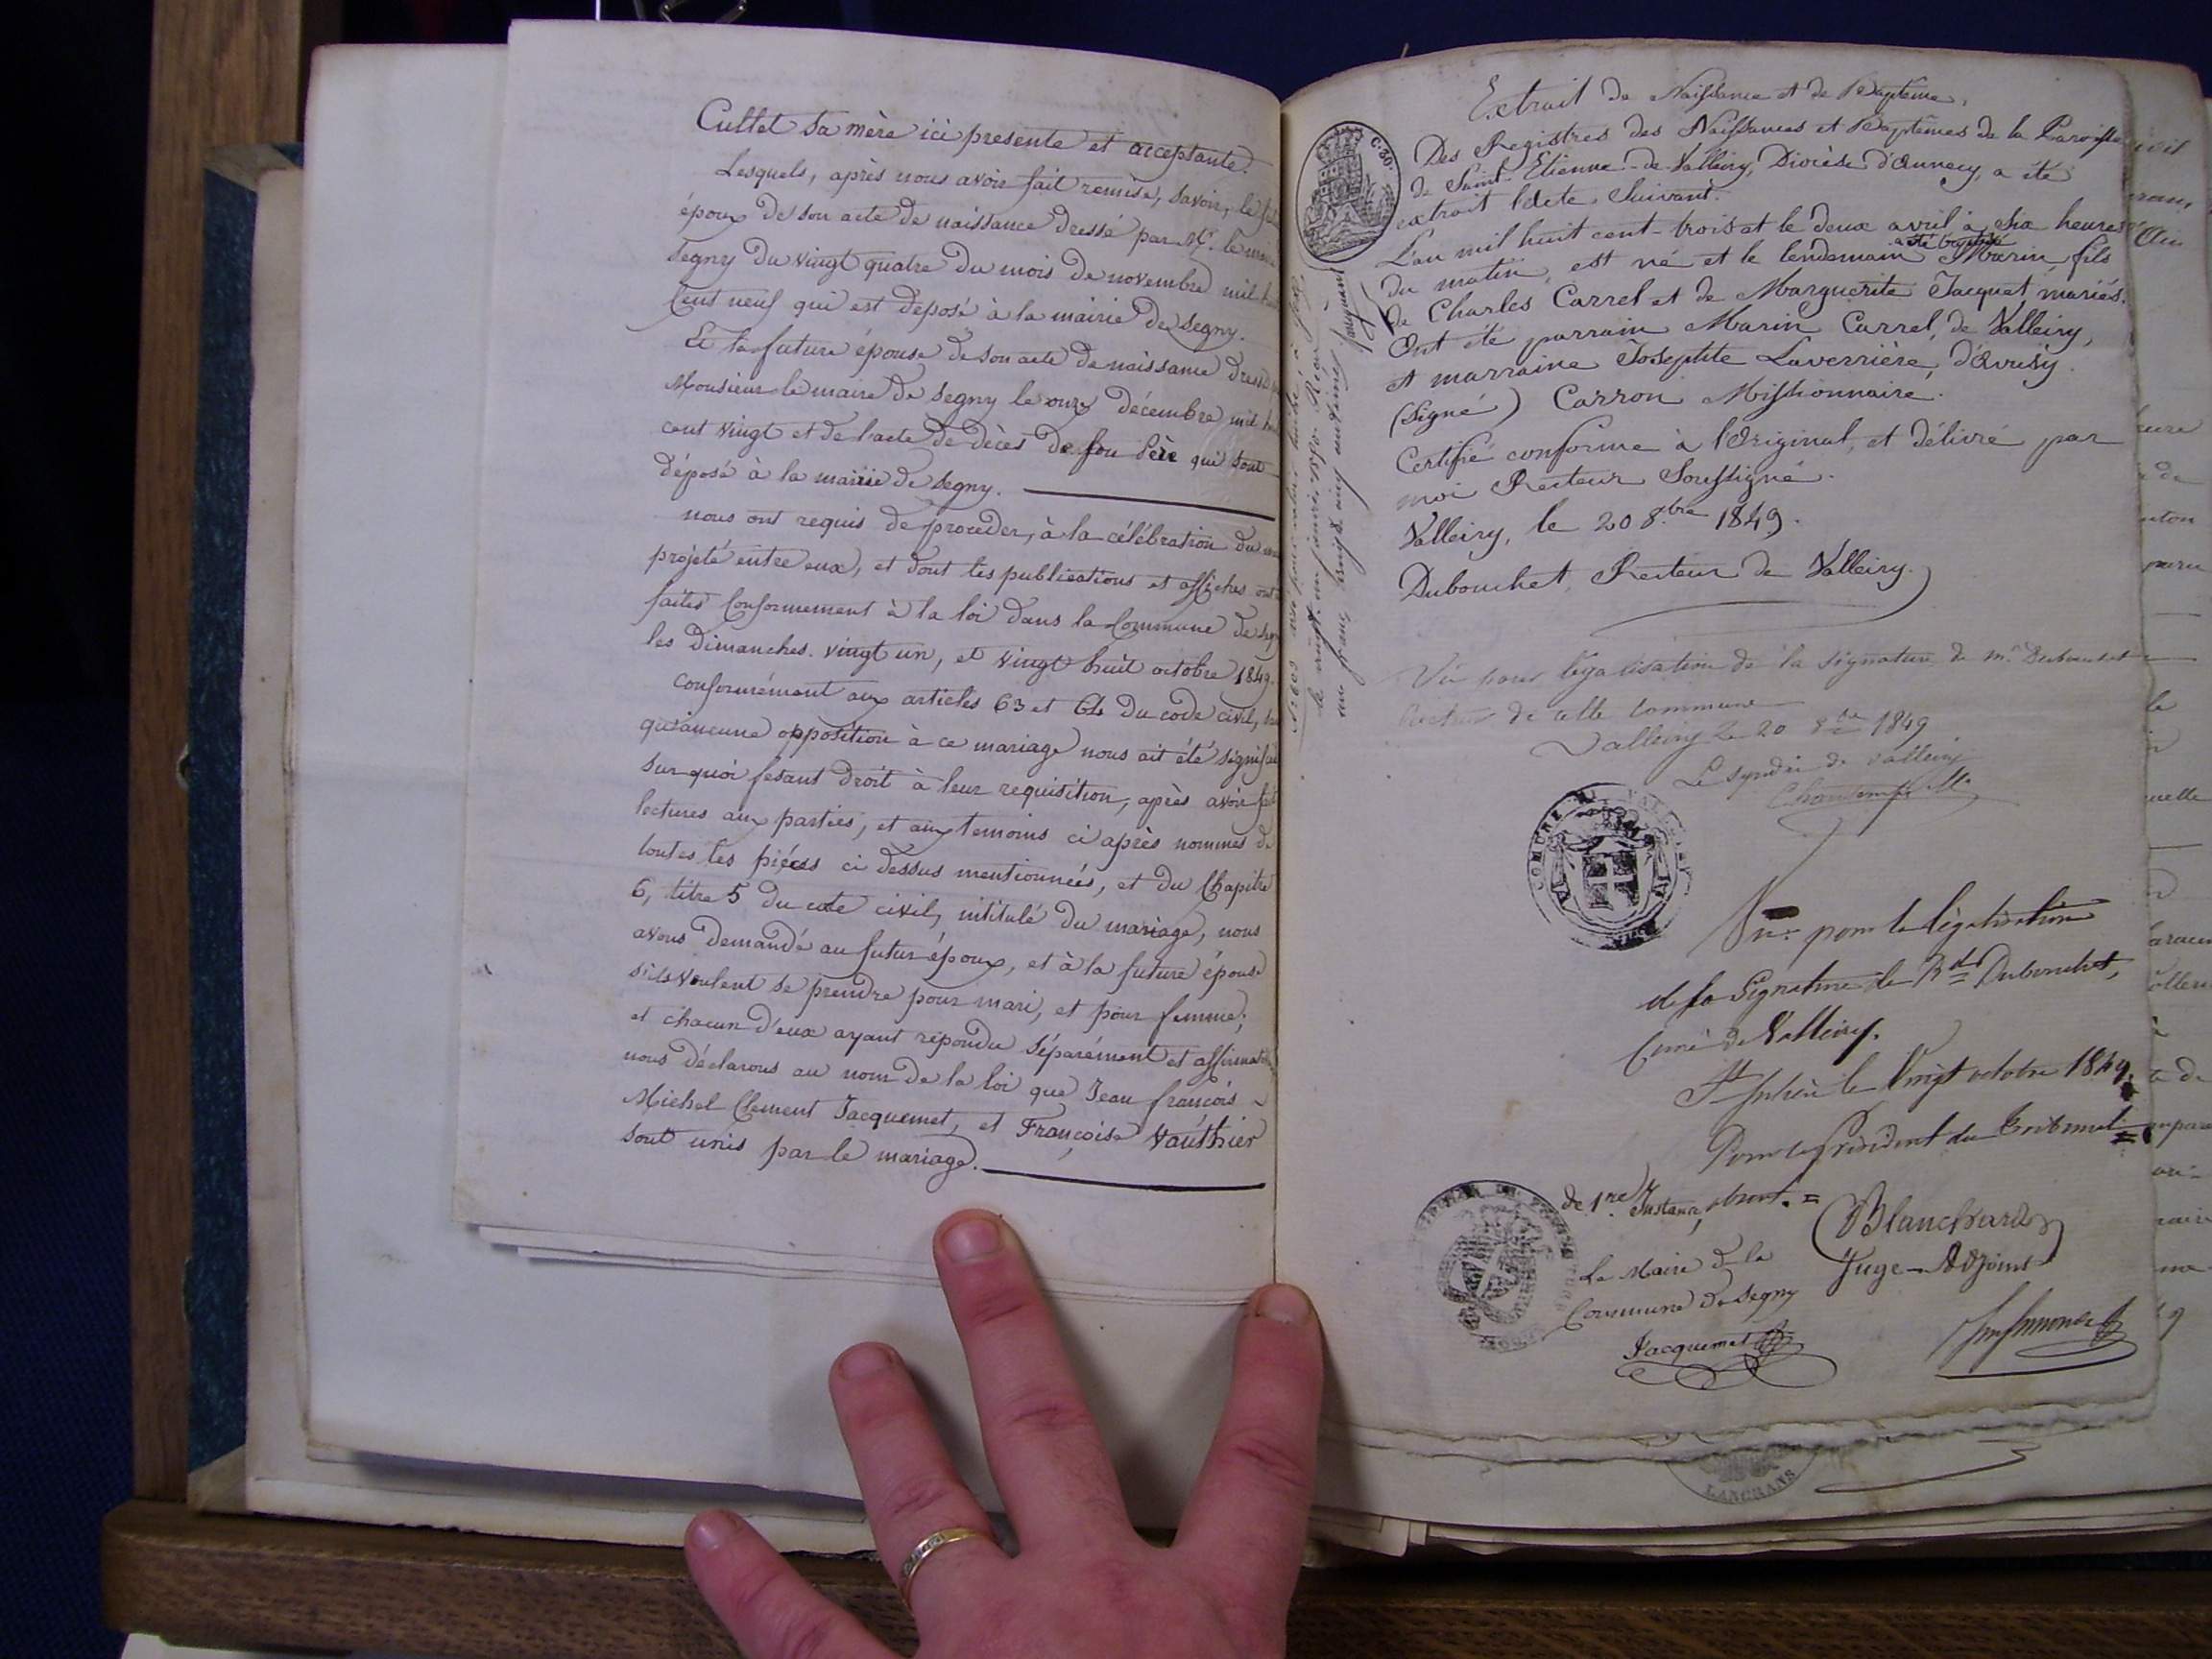 Cullet sa mère ici presente et acceptante.
Lesquels, après nous avoir fait remise, savoir, le
époux de son acte de naissance dressé par Mr. le
Segny du vingt quatre du mois de novembre mil
Cent neuf qui est déposé à la mairie de Segny.
Et la future épouse de son acte de naissance dressé
Monsieur le maire de Segny le onze décembre mil
cent vingt et de l'acte de décès de feu Père qui sont
déposé à la mairie de Segny.
nous ont requis de proceder, à la célébration du
projeté entre eux, et dont les publications et affiches ont
faites Conformement à la loi dans la Commune de
les Dimanches. vingt un, et vingt huit octobre 1849.
conformément aux articles 63 et 64 du code civil,
qu'aucune opposition à ce mariage nous ait été signifiée
sur quoi fesant droit à leur requisition, après avoir fait
lectures aux parties, et aux temoins ci après nommés de
toutes les piéces ci dessus mentionnées, et du Chapitre
6, titre 5 du code civil, intitulé du mariage, nous
avons demandé au futur époux, et à la future épouse
s'ils veulent se prendre pour mari, et pour femme;
et chacun d'eux ayant repondu séparément et
nous déclarons au nom de la loi que Jean françois
Michel Clement Jacquemet, et Françoise Vauthier
sont unis par le mariage.
Extrait de Naissance et de Baptême.
Des Registres des Naissances et Baptêmes de la Paroisse
de Saint Etienne de Valleiry, Diocèse d'Annecy, a été
extrait l'acte Suivant.
L'an mil huit cent-trois et le deux avril à six heures
a été baptisé
du matin, est né et le lendemain Marin fils
de Charles Carrel et de Marguerite Jacquet mariés.
Ont été parrain Marin Carrel, de Valleiry,
et marraine Josephte Laverrière, d'Avusy.
(Signé) Carron Missionnaire.
Certifié conforme à l'Original, et délivré par
moi Recteur Soussigné.
Valleiry, le 20 8bre 1849.
Dubouchet, Recteur de Valleiry.
Vu pour légalisation de la signature de Mr. Dubouchet
Recteur de cette commune
Valleiry le 20 8bre 1849
Le syndic de Valleiry
Vu pour la légalisation
de la Signature de Rd Dubouchet,
Curé de Valleiry.
St Julien le Vingt octobre 1849.
Pour le Président du Tribunal
de 1re Instance, absent.
Blanchard
Juge-Adjoint
Le Maire de la
Commune de Segny
Jacquemet
LANCRANS